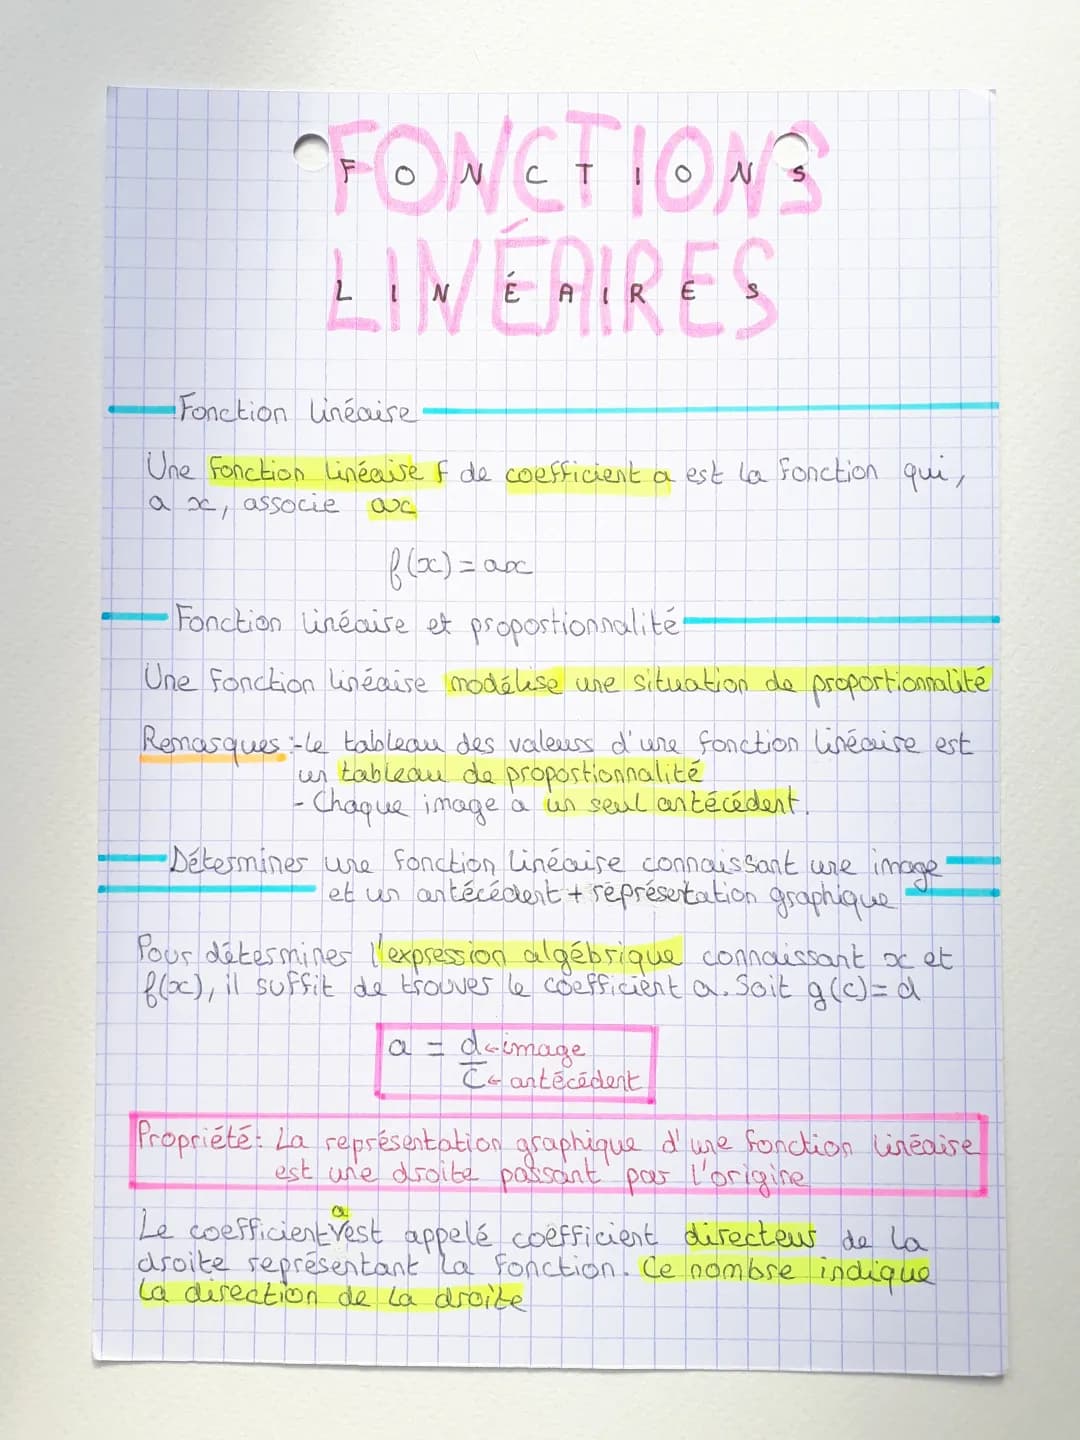 FONCTIONS
LINÉAIRES
Fonction linéaire
Une fonction linéaire f de coefficient a est la fonction qui,
a x, associe ax
f(x) = ax
Fonction linéaire et proportionnalité
Une fonction linéaire modélise une situation de proportionnalité
Remarques :-Le tableau des valeurs d'une fonction linéaire est
un tableau de proportionnalité
- Chaque image a un seul antécédent.
Déterminer une fonction linéaire connaissant une image
et un antécédent + représentation graphique
Pour déterminer l'expression algébrique connaissant x et
f(x), il suffit de trouver le coefficient a. Soit g(c)= d
a = d ← image
c ← antécédent
Propriété: La représentation graphique d'une fonction linéaire
est une droite passant par l'origine
a
Le coefficient est appelé coefficient directeur de la
droite représentant la fonction. Ce nombre indique
la direction de la droite